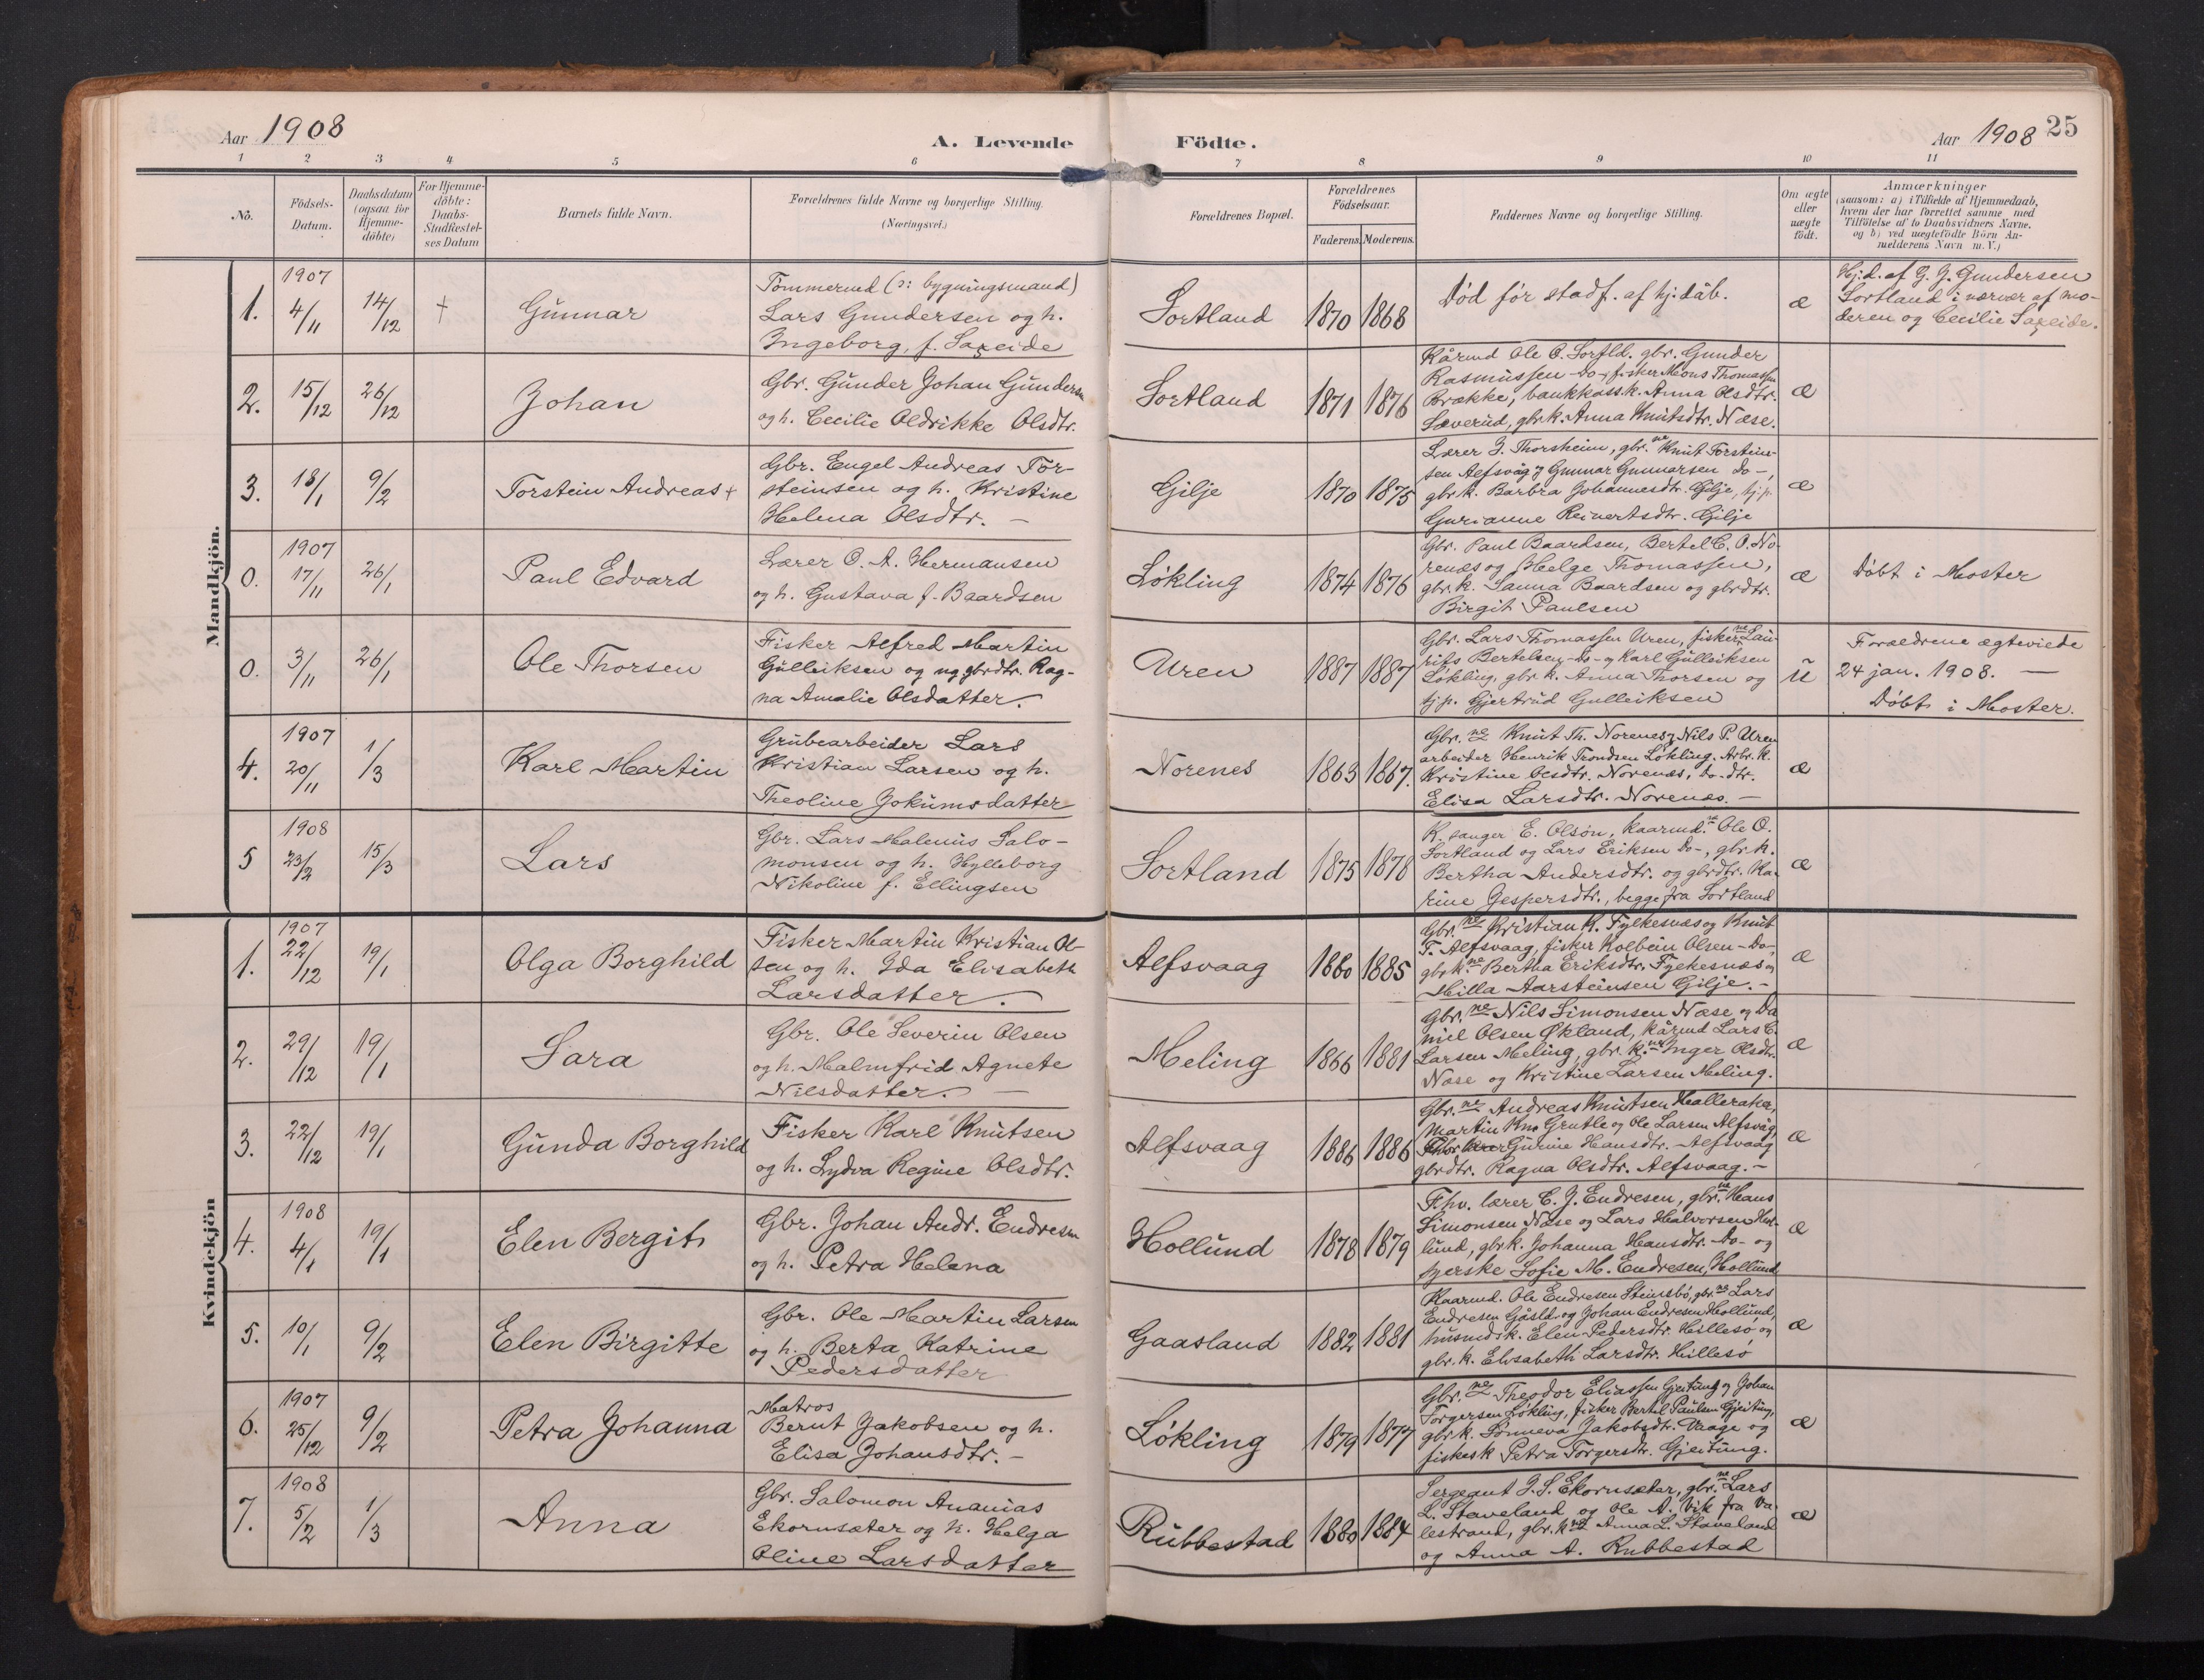 Aar 1908
A. Levende
Födte.
Aar 1908 25
1 2 3 4 5 6 7 8 9 10 11
No.
Födsels-
Datum.
Daabsdatum
(ogsaa for
Hjemme-
döbte)
For Hjemme-
döbte:
Daabs-
Stadfæstel-
ses Datum
Barnets fulde Navn.
Forældrenes fulde Navne og borgerlige Stilling.
(Næringsvei.)
Forældrenes Bopæl.
Forældrenes
Födselsaar.
Faderens. Moderens.
Faddernes Navne og borgerlige Stilling.
Om ægte
eller
uægte
födt.
Anmærkninger
(saasom: a) i Tilfælde af Hjemmedaab,
hvem der har forrettet samme med
Tilföielse af to Daabsvidners Navne.
og b) ved uægtefödte Börn An-
melderens Navn m. V.)
Mandkjön.
1. 1907 4/11 14/12 † Gunnar
Tömmermd (ɔ: bygningsmand)
Lars Gundersen og h.
Ingeborg, f. Saxeide
Sortland 1870 1868
Död før stadf. af hj.dåb.
æ
Hj.d. af G. J. Gundersen
Sortland i nærvær af mo-
deren og Cecilie Saxeide.
2. 15/12 26/12 Johan
Gbr. Gunder Johan Gundersen
og h. Cecilie Oldrikke Olsdtr.
Sortland 1871 1876
Kårmd Ole O. Sortld. gbr. Gunder
Rasmussen -Do-, fisker Mons Thomassen
Brække, bankkass.k. Anna Olsdtr.
Sæverud, gbr.k. Anna Knutsdtr. Næse.
æ
3. 18/1 9/2 Torstein Andreas +
Gbr. Engel Andreas Tor-
steinsen og h. Kristine
Helena Olsdtr. –
Gilje 1870 1875
Lærer J. Thorsheim, gbr.ne Knut Torstein-
sen Alfsvåg og Gunnar Gunnarsen Do-,
gbr.k. Barbra Johannesdtr. Gilje, tj.p.
Gurianne Reinertsdtr. Gilje
æ
0. 1907 17/11 26/1 Paul Edvard
Lærer O. A. Hermansen
og h. Gustava f. Baardsen
Løkling 1874 1876
Gbr. Paul Baardsen, Bertel C. O. No-
renæs og Helge Thomassen,
gbr.k. Sanna Baardsen og gbrdtr.
Birgit Paulsen
æ
Døbt i Moster
0. 3/11 26/1 Ole Thorsen
Fisker Alfred Martin
Gulleiksen og ug.gbrdtr. Rag-
na Amalie Olsdatter.
Uren 1887 1887
Gbr. Lars Thomassen Uren, fisker.ne Lau-
rits Bertelsen -Do- og Karl Gulleiksen
Løkling, gbr.k. Anna Thorsen og
tj.p. Gjertrud Gulleiksen
ü
Forældrene ægteviede
24 jan. 1908. –
Døbt i Moster.
4. 1907 20/11 1/3 Karl Martin
Grubearbeider Lars
Kristian Larsen og h.
Theoline Jokumsdatter
Norenes 1863 1867.
Gbr.ne Knut Th. Norenes og Nils P. Uren
arbeider Henrik Trondsen Løkling. Arbr.k.
Kristine Olsdtr. Norenæs, Do. dtr.
Elisa Larsdtr. Norenæs. –
æ
5 1908 23/2 15/3 Lars
Gbr. Lars Malenius Salo-
monsen og h. Hylleborg
Nikoline f. Ellingsen
Sortland 1875 1878
K.sanger E. Olson, kaarmd.ne Ole O.
Sortland og Lars Eriksen Do-, gbr.k.
Bertha Andersdtr. og gbrdtr. Ka-
rine Jespersdtr., begge fra Sortland
æ
Kvindekjön
1. 1907 22/12 19/1 Olga Borghild
Fisker Martin Kristian Ol-
sen og h. Ida Elisabeth
Larsdatter.
Alfsvaag 1880 1885
Gbr.ne Kristian K. Fylkesnæs og Knut
T. Alfsvaag, fisker Kolbein Olsen -Do-,
gbr.k.ne Bertha Eriksdtr. Fylkesnæs og
Milla Aarsteinsen Gilje. –
æ
2. 29/12 19/1 Sara
Gbr. Ole Severin Olsen
og h. Malmfrid Agnete
Nilsdatter. –
Meling 1866 1881
Gbr.ne Nils Simonsen Næse og Da-
niel Olsen Økland, kårmd Lars C.
Larsen Meling, gbr.k.ne Inger Olsdtr.
Næse og Kristine Larsen Meling.
æ
3. 22/12 19/1 Gunda Borghild
Fisker Karl Knutsen
og h. Lydva Regine Olsdtr.
Alfsvaag 1886 1886
Gbr.ne Andreas Knutsen Halleraker,
Martin Kn. Grutle og Ole Larsen Alfsvåg,
Gurine Hansdtr. Alfsvaag
gbrdtr. Ragna Olsdtr. Alfsvaag. –
æ
4. 1908 4/1 19/1 Elen Bergit
Gbr. Johan Andr. Endresen
og h. Petra Helena
Hollund 1878 1879
Fhv. lærer E. J. Endresen, gbr.ne Hans
Simonsen Næse og Lars Halvorsen Hol-
lund, gbr.k. Johanna Hansdtr. -Do- og
syerske Sofie M. Endresen, Hollund
æ
5. 10/1 9/2 Elen Birgitte
Gbr. Ole Martin Larsen
og h. Berta Katrine
Pedersdatter
Gaasland 1882 1881
Kaarmd. Ole Endresen Steinsbö, gbr.ne Lars
Endresen Gåsld. og Johan Endresen Hollund,
husmdsk. Elen Pedersdtr. Hillesø, og
gbr.k. Elisabeth Larsdtr. Hillesø
æ
6. 1907 25/12 9/2 Petra Johanna
Matros
Bernt Jakobsen og h.
Elisa Johansdtr. –
Løkling 1879 1877
Gbr.ne Theodor Eliassen Gjeitung og Johan
Torgersen Løkling, fisker Bertel Paulsen Gjeitung,
gbr.k. Sønneva Jakobsdtr. Vaage og
fiskesk Petra Torgersdtr. Gjeitung.
æ
7. 1908 5/2 1/3 Anna
Gbr. Salomon Ananias
Ekornsæter og h. Helga
Oline Larsdatter
Rubbestad 1880 1884
Sergeant J. S. Ekornsæter, gbr.ne Lars
L. Staveland og Ole A. Vik fra Va-
lestrand, gbr.k.ne Anna L. Staveland
og Anna A. Rubbestad
æ